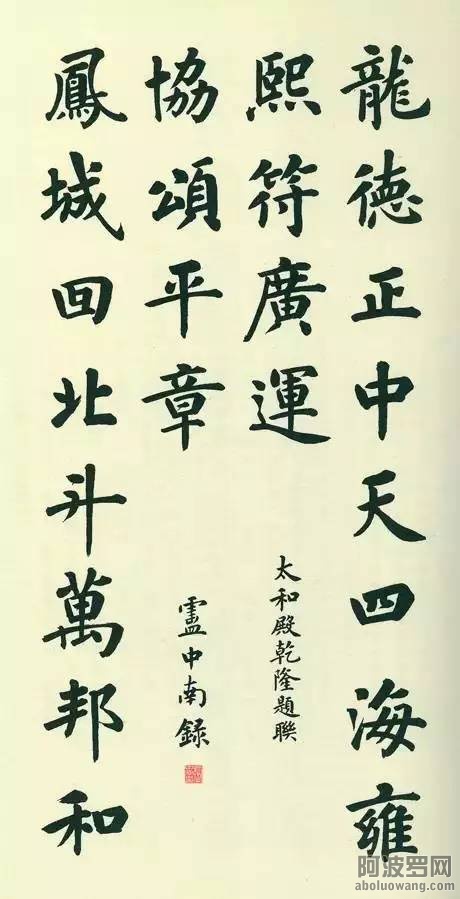 龍德正中天四海雍
熙符廣運
太和殿乾隆題聯
鳳城回北斗萬邦和
協頌平章
盧中南錄
阿波罗网
aboluowang.com